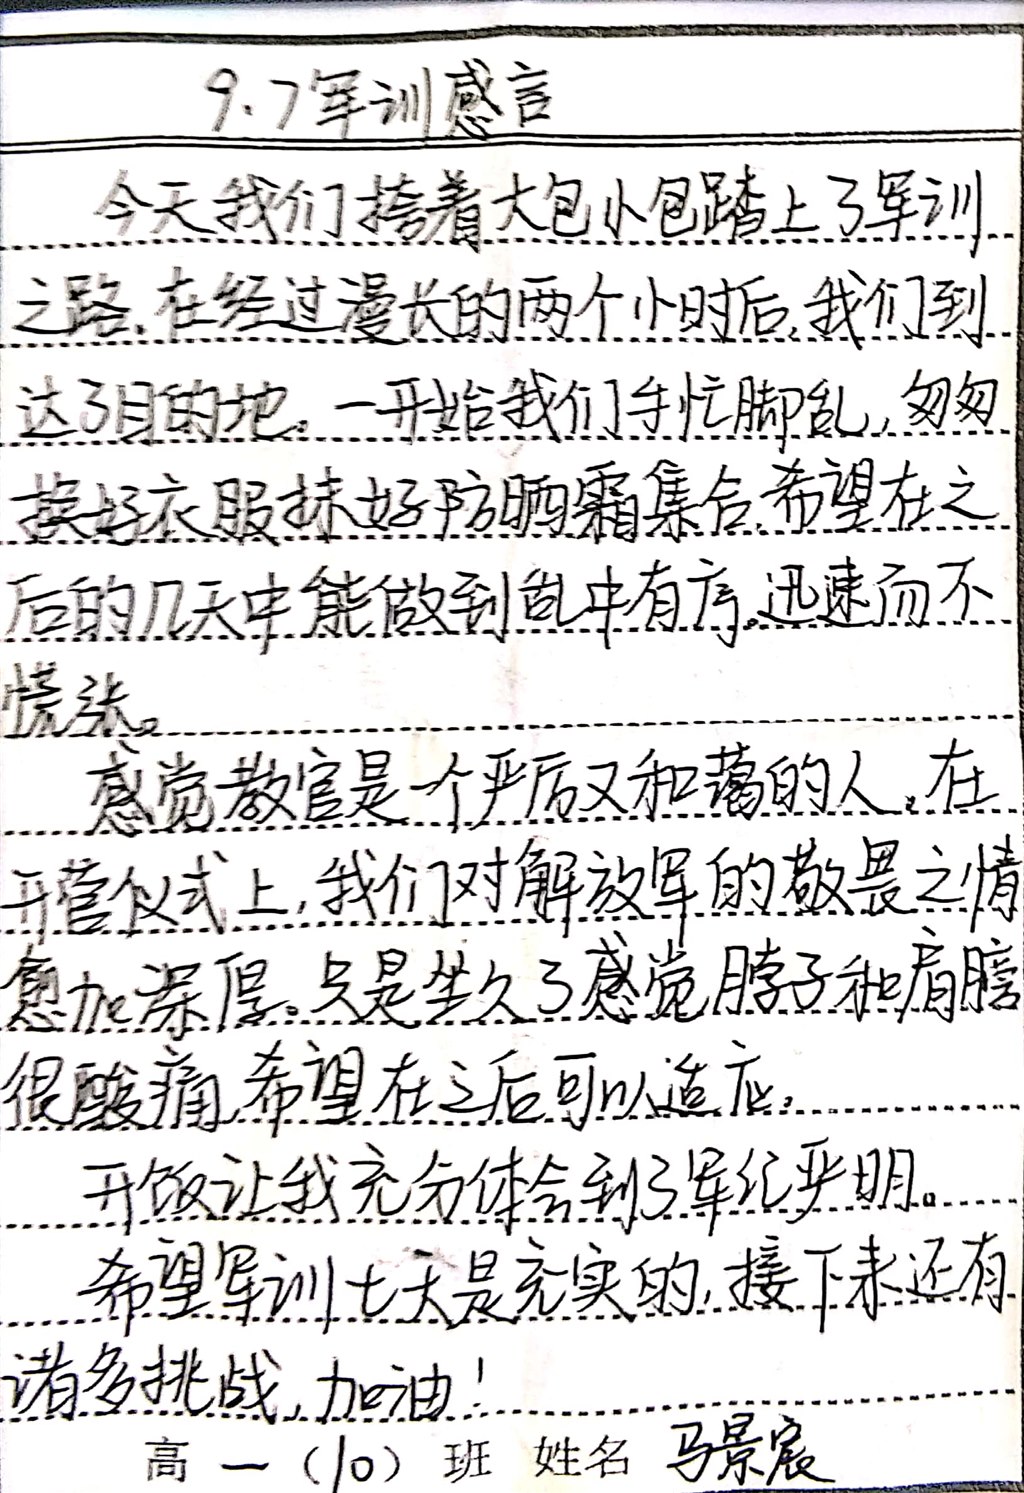 9.7军训感言
今天我们挎着大包小包踏上了军训
之路,在经过漫长的两个小时后,我们到
达了目的地。一开始我们手忙脚乱,匆匆
换好衣服抹好防晒霜集合,希望在之
后的几天中能做到乱中有序。迅速而不
慌张。
感觉教官是一个严厉又和蔼的人。在
开营仪式上,我们对解放军的敬畏之情
愈加深厚。只是坐久了感觉脖子和肩膀
很酸痛,希望在之后可以适应。
开饭让我充分体会到了军纪严明。
希望军训七天是充实的,接下来还有
诸多挑战,加油!
高一(10)班 姓名 马景宸